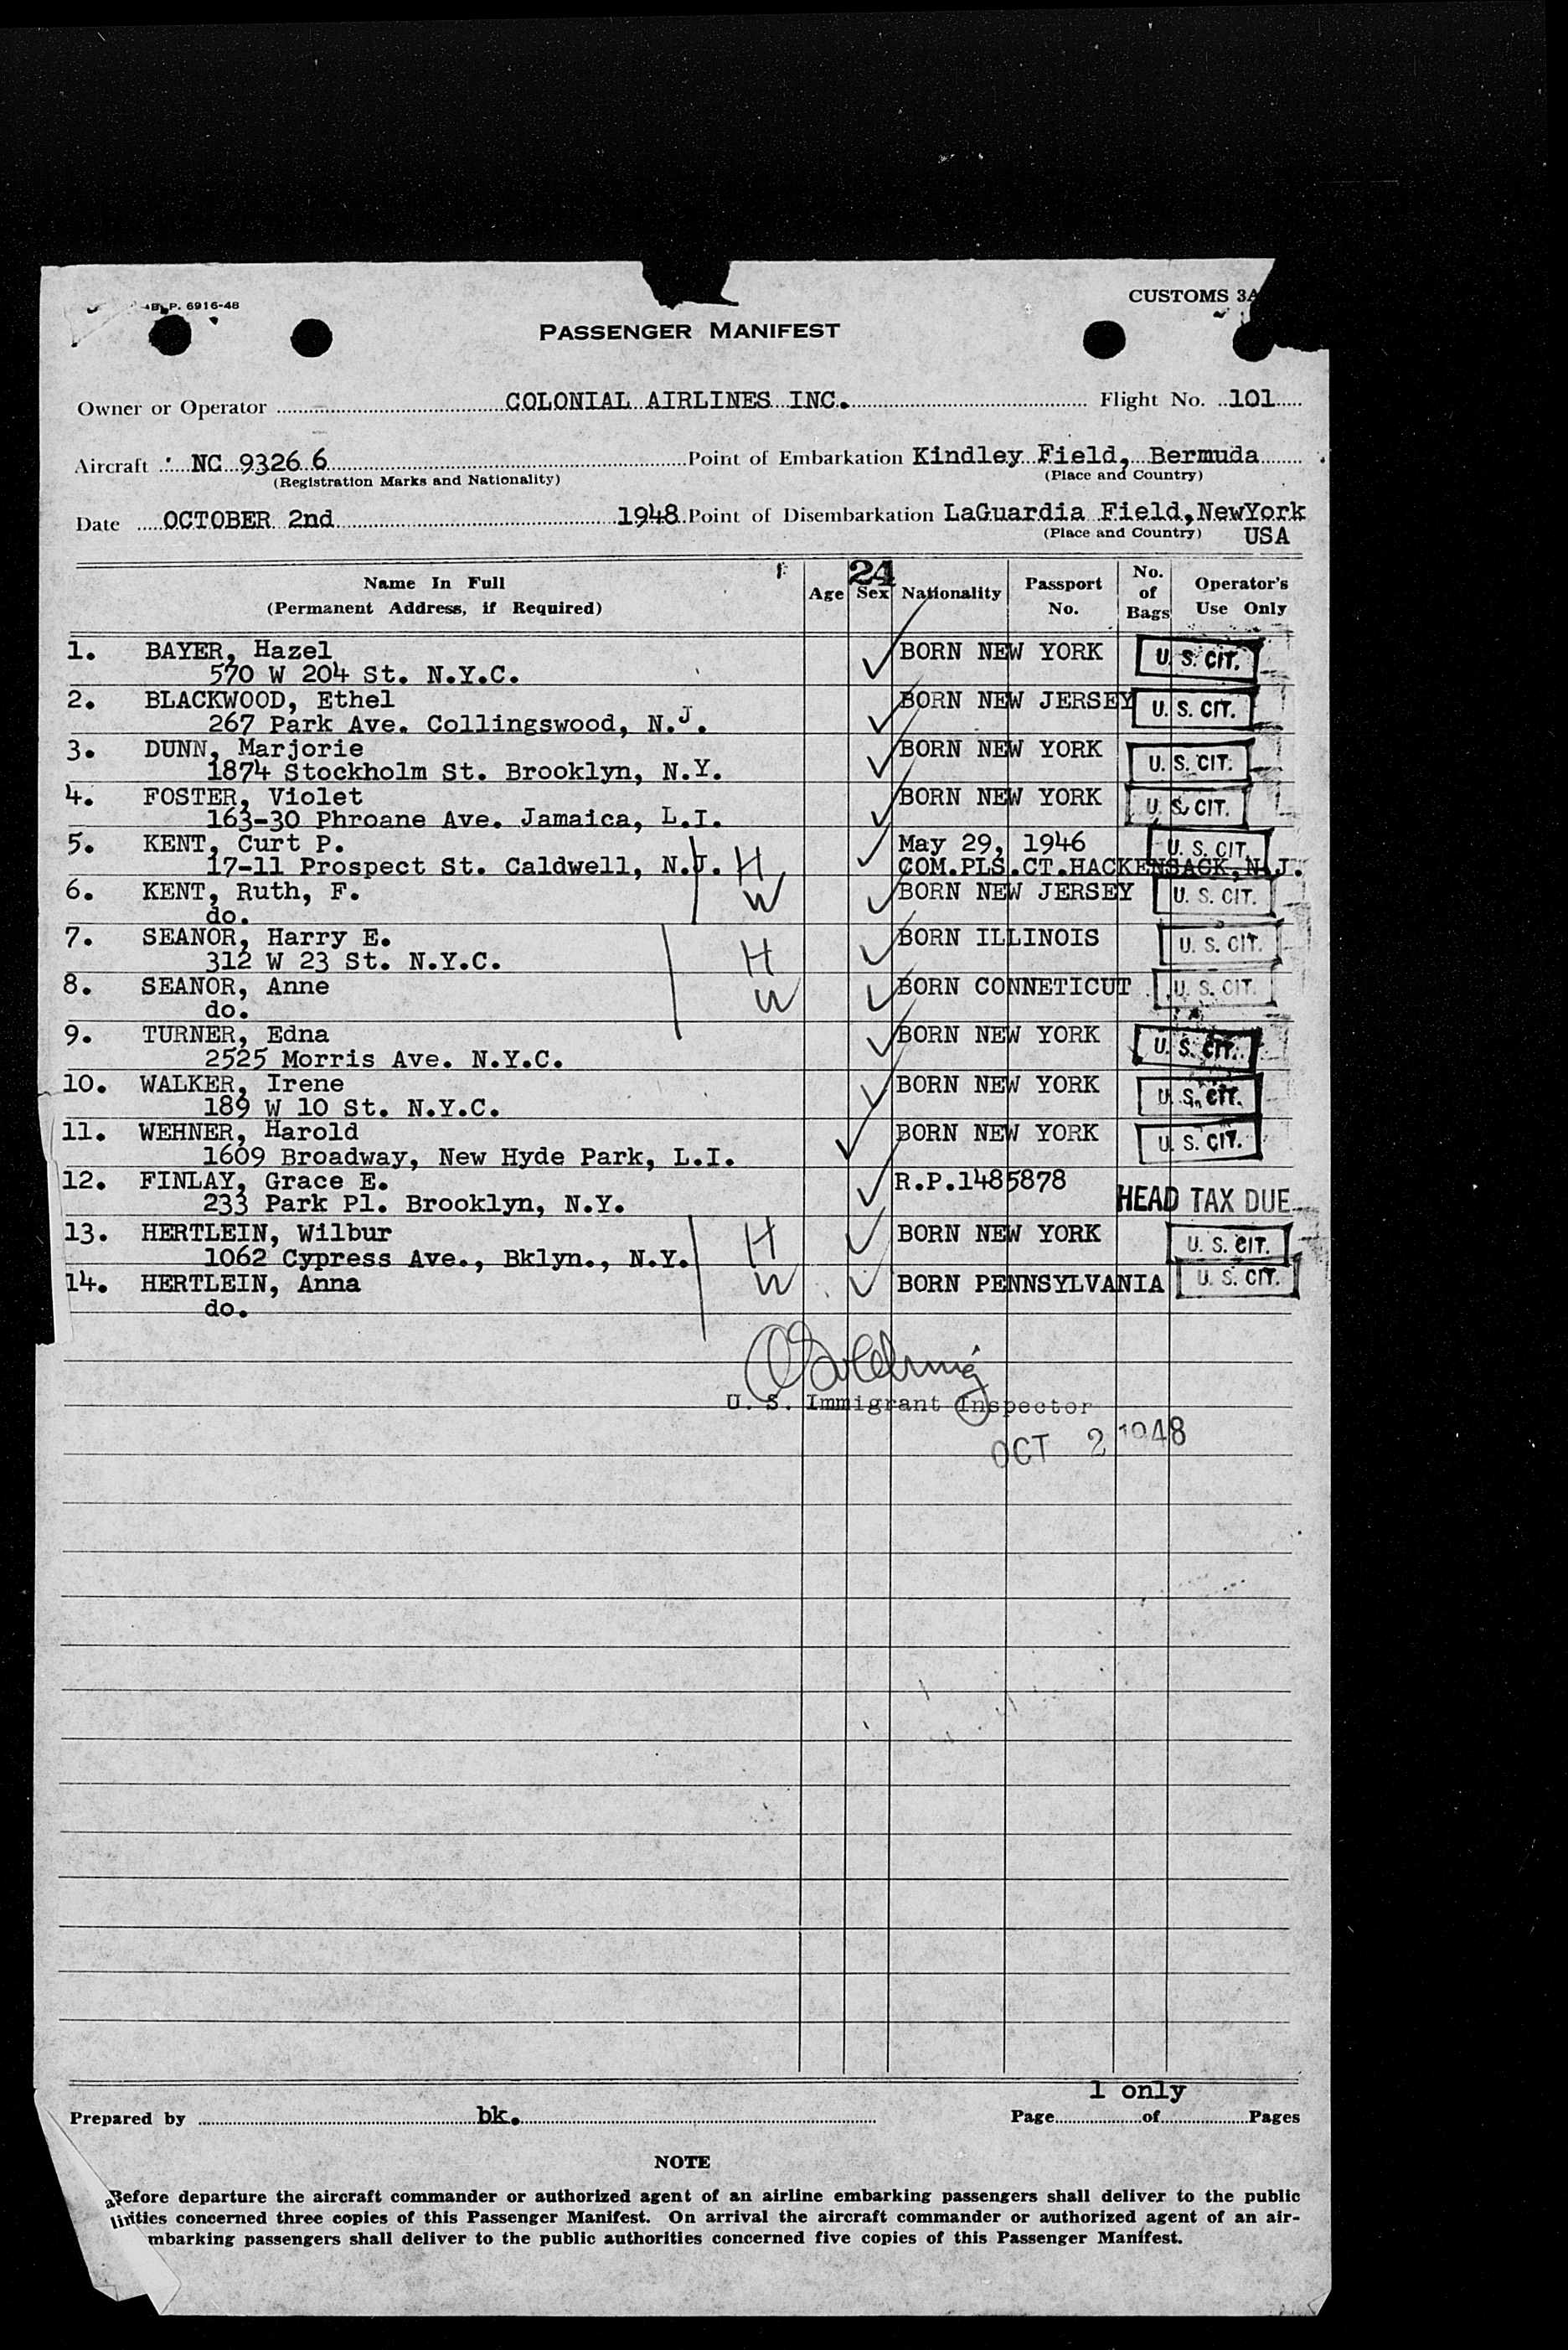 P. 6916-48
CUSTOMS 3A
PASSENGER MANIFEST
Owner or Operator COLONIAL AIRLINES INC. Flight No. 101
Aircraft NC 93266 Point of Embarkation Kindley Field, Bermuda
(Registration Marks and Nationality) (Place and Country)
Date OCTOBER 2nd 1948 Point of Disembarkation LaGuardia Field, NewYork
(Place and Country) USA
24
Name In Full Age Sex Nationality Passport No. of Operator's
(Permanent Address, if Required) No. Bags Use Only
1. BAYER, Hazel BORN NEW YORK U. S. CIT.
570 W 204 St. N.Y.C.
2. BLACKWOOD, Ethel BORN NEW JERSEY U. S. CIT.
267 Park Ave. Collingswood, N.J.
3. DUNN, Marjorie BORN NEW YORK U. S. CIT.
1874 Stockholm St. Brooklyn, N.Y.
4. FOSTER, Violet BORN NEW YORK U. S. CIT.
163-30 Phroane Ave. Jamaica, L.I.
5. KENT, Curt P. May 29, 1946 U. S. CIT.
17-11 Prospect St. Caldwell, N.J. H COM.PLS.CT.HACKENSACK,N.J.
6. KENT, Ruth, F. W BORN NEW JERSEY U. S. CIT.
do.
7. SEANOR, Harry E. H BORN ILLINOIS U. S. CIT.
312 W 23 St. N.Y.C.
8. SEANOR, Anne W BORN CONNETICUT U. S. CIT.
do.
9. TURNER, Edna BORN NEW YORK U. S. CIT.
2525 Morris Ave. N.Y.C.
10. WALKER, Irene BORN NEW YORK U. S. CIT.
189 W 10 St. N.Y.C.
11. WEHNER, Harold BORN NEW YORK U. S. CIT.
1609 Broadway, New Hyde Park, L.I.
12. FINLAY, Grace E. R.P.1485878
233 Park Pl. Brooklyn, N.Y. HEAD TAX DUE
13. HERTLEIN, Wilbur H BORN NEW YORK U. S. CIT.
1062 Cypress Ave., Bklyn., N.Y.
14. HERTLEIN, Anna W BORN PENNSYLVANIA U. S. CIT.
do.
U. S. Immigrant Inspector
OCT 2 1948
1 only
Prepared by bk. Page of Pages
NOTE
Before departure the aircraft commander or authorized agent of an airline embarking passengers shall deliver to the public
concerned three copies of this Passenger Manifest. On arrival the aircraft commander or authorized agent of an air-
mbarking passengers shall deliver to the public authorities concerned five copies of this Passenger Manifest.